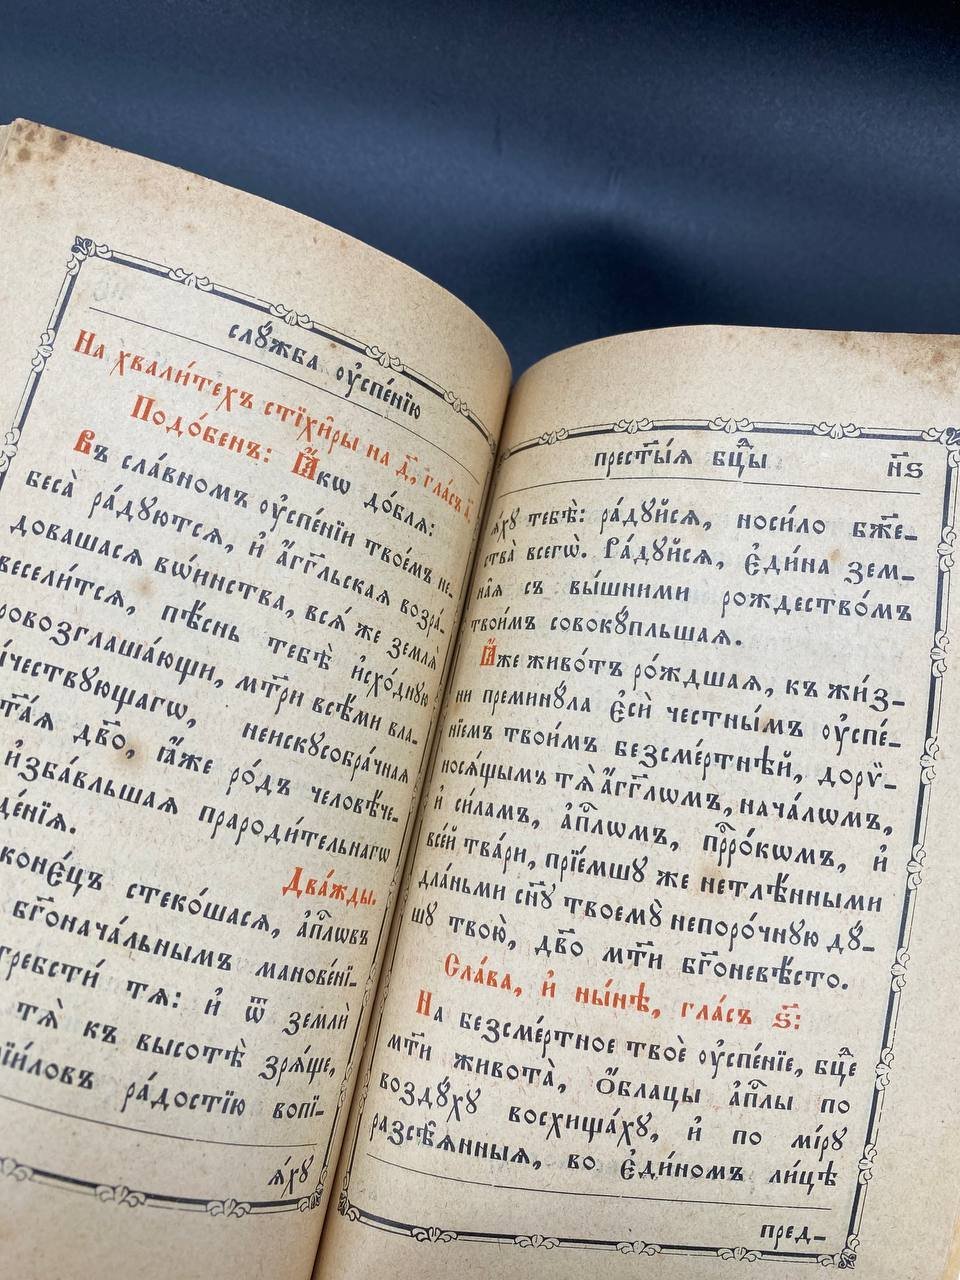 слꙋ́жба ᲂу҆спе́нїю
На хвали́техъ стїхи̑ры на д҃, гла́съ а҃.
Подо́бенъ: Ꙗ҆́кѡ до́блѧ:
Въ сла́вномъ ᲂу҆спе́нїи твое́мъ не-
беса̀ ра́дꙋютсѧ, и҆ а҆́гг҃льскаѧ возра́-
довашасѧ вѡ́инства, всѧ́ же землѧ̀
весели́тсѧ, пѣ́снь тебѣ̀ и҆схо́днꙋю
провозглаша́ющи, мт҃ри всѣ́ми вла-
ды́чествꙋющагѡ, неискꙋсобра́чнаѧ
ст҃а́ѧ дв҃о, ꙗ҆́же ро́дъ человѣ́че-
и҆зба́вльшаѧ прароди́тельнагѡ
Два́жды.
коне́цъ стеко́шасѧ, а҆пⷭ҇лѡвъ
бг҃онача́льнымъ манове́нї-
погребстѝ тѧ̀: и҆ ѿ землѝ
тѧ̀ къ высотѣ̀ зрѧ́ще,
гаврїи́ловъ ра́достїю вопї-
ѧ́хꙋ
прест҃ы́ѧ бцⷣы н҃ѕ
ѧ́хꙋ тебѣ̀: ра́дꙋйсѧ, носи́ло бж҃е-
ства̀ всегѡ̀. Ра́дꙋйсѧ, є҆ди́на зем-
на̑ѧ съ вы́шними рождество́мъ
твои́мъ совокꙋ́пльшаѧ.
Ꙗ҆́же живо́тъ ро́ждшаѧ, къ жи́з-
ни преминꙋ́ла є҆сѝ честны́мъ ᲂу҆спе́-
нїемъ твои́мъ безсме́ртнѣй, дорѷ-
носѧ́щымъ тѧ̀ а҆́гг҃лѡмъ, нача́лѡмъ,
и҆ си́ламъ, а҆пⷭ҇лѡмъ, прⷪ҇ро́кѡмъ, и҆
все́й тва́ри, прїе́мшꙋ же нетлѣ́нными
дла́ньми сн҃ꙋ твоемꙋ̀ непоро́чнꙋю дꙋ́-
шꙋ твою̀, дв҃о мт҃и бг҃оневѣ́сто.
Сла́ва, и҆ ны́нѣ, гла́съ ѕ҃:
На безсме́ртное твоѐ ᲂу҆спе́нїе, бцⷣе
мт҃и живота̀, ѻ҆́блацы а҆пⷭ҇лы по
воздꙋ́хꙋ восхища́хꙋ, и҆ по мі́рꙋ
разсѣ̑ѧнныѧ, во є҆ди́номъ ли́цѣ
пред-